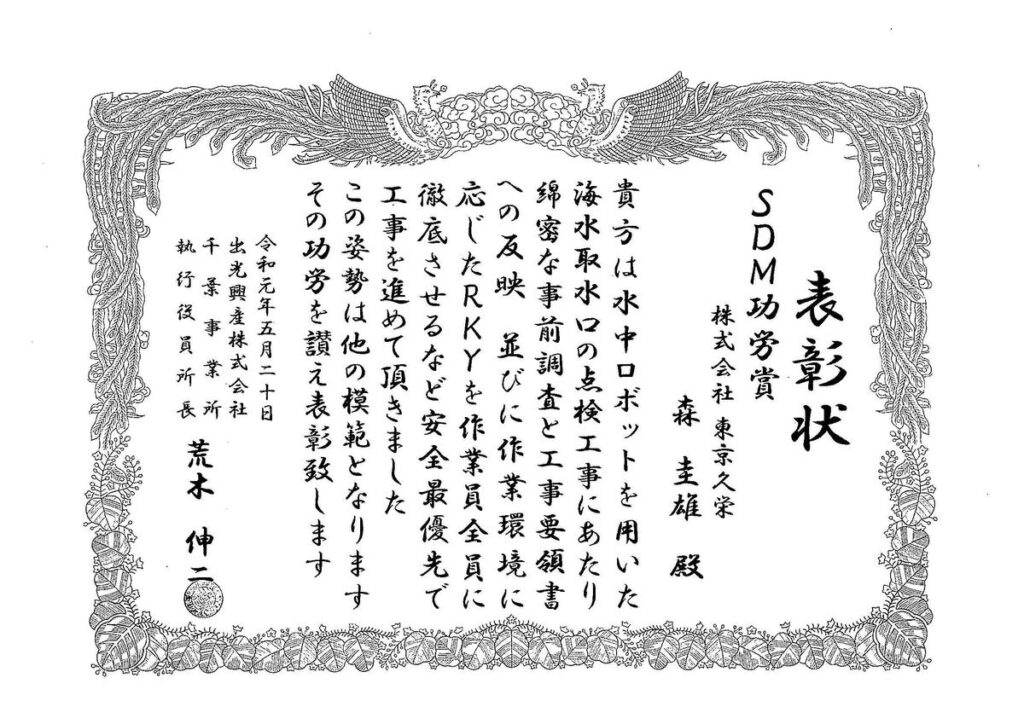 表彰状
SDM功労賞
株式会社 東京久栄
森 圭雄 殿
貴方は水中ロボットを用いた
海水取水口の点検工事にあたり
綿密な事前調査と工事要領書
への反映 並びに作業環境に
応じたRKYを作業員全員に
徹底させるなど安全最優先で
工事を進めて頂きました
この姿勢は他の模範となります
その功労を讃え表彰致します
令和元年五月二十日
出光興産株式会社
千葉事業所
執行役員所長
荒木 伸二